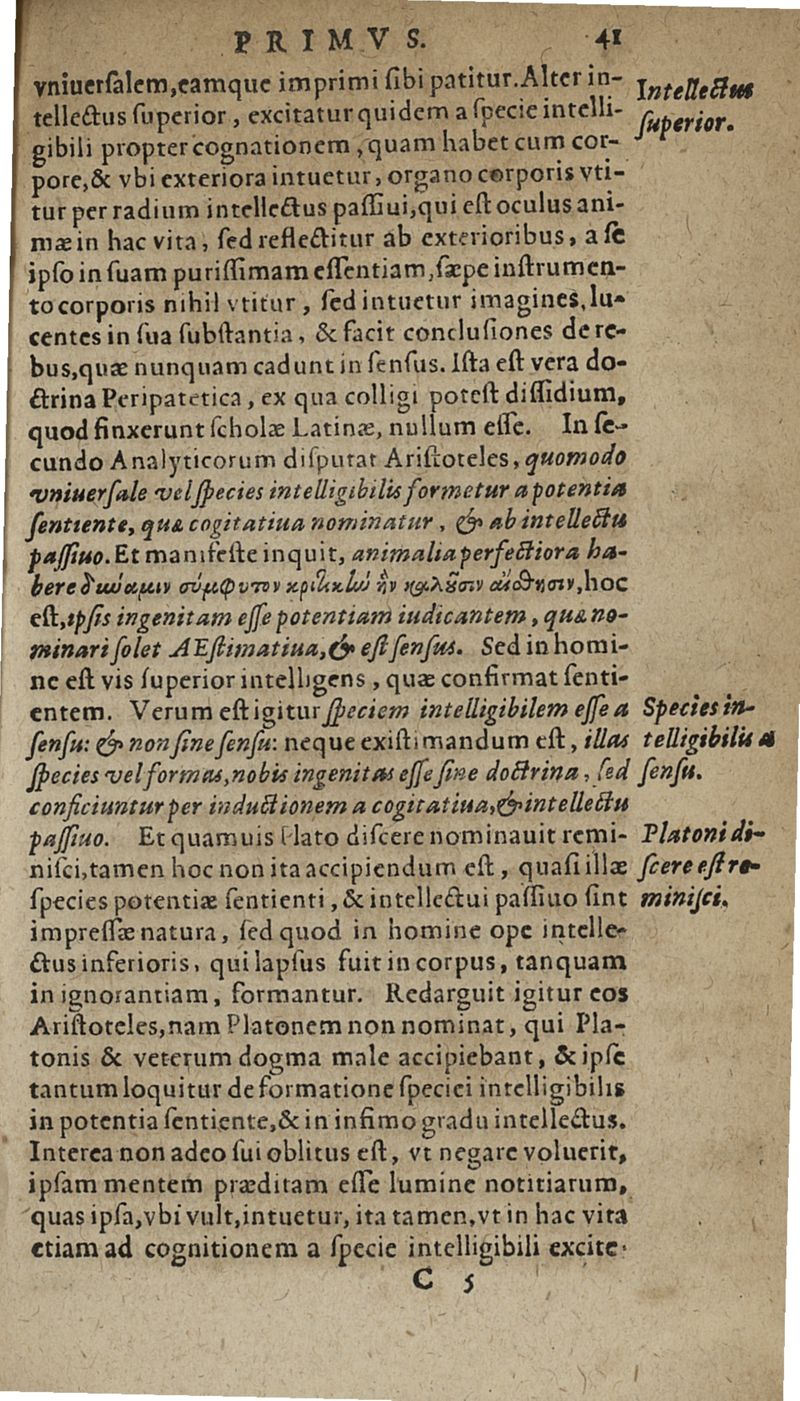 PRIMVS. 41
vniuerſalem,eamque imprimi ſibi patitur.Alter in-
tellectus ſuperior, excitatur quidem a ſpecie intelli-
gibili propter cognationem, quam habet cum cor-
pore,& vbi exteriora intuetur, organo corporis vti-
tur per radium intellectus paſſiui,qui eſt oculus ani-
mæ in hac vita, ſed reflectitur ab exterioribus, a ſe
ipſo in ſuam puriſſimam eſſentiam,ſæpe inſtrumen-
to corporis nihil vtitur, ſed intuetur imagines,lu-
centes in ſua ſubſtantia, & facit concluſiones de re-
bus,quæ nunquam cadunt in ſenſus. Iſta eſt vera do-
ctrina Peripatetica, ex qua colligi poteſt diſſidium,
quod finxerunt ſcholæ Latinæ, nullum eſſe. In ſe-
cundo Analyticorum diſputat Ariſtoteles, quomodo
vniuerſale vel ſpecies intelligibilis formetur a potentia
ſentiente, quæ cogitatiua nominatur, & ab intellectu
paſſiuo. Et manifeſte inquit, animalia perfectiora ha-
bere δύναμιν σύμφυτον κριτικὴν ἣν καλοῦσιν αἴσθησιν,hoc
eſt,ipſis ingenitam eſſe potentiam iudicantem, quæ no-
minari ſolet AEſtimatiua,& eſt ſenſus. Sed in homi-
ne eſt vis ſuperior intelligens, quæ confirmat ſenti-
entem. Verum eſt igitur ſpeciem intelligibilem eſſe a
ſenſu: & non ſine ſenſu: neque exiſtimandum eſt, illas
ſpecies vel formas,nobis ingenitas eſſe ſine doctrina, ſed
conficiuntur per inductionem a cogitatiua,& intellectu
paſſiuo. Et quamuis Plato diſcere nominauit remi-
niſci,tamen hoc non ita accipiendum eſt, quaſi illæ
ſpecies potentiæ ſentienti, & intellectui paſſiuo ſint
impreſſæ natura, ſed quod in homine ope intelle-
ctus inferioris, qui lapſus fuit in corpus, tanquam
in ignorantiam, formantur. Redarguit igitur eos
Ariſtoteles,nam Platonem non nominat, qui Pla-
tonis & veterum dogma male accipiebant, & ipſe
tantum loquitur de formatione ſpeciei intelligibilis
in potentia ſentiente,& in infimo gradu intellectus.
Interea non adeo ſui oblitus eſt, vt negare voluerit,
ipſam mentem præditam eſſe lumine notitiarum,
quas ipſa,vbi vult,intuetur, ita tamen,vt in hac vita
etiam ad cognitionem a ſpecie intelligibili excite-
C 5
Intellectus
ſuperior.
Species in-
telligibilis a
ſenſu.
Platoni di-
ſcere eſt re-
miniſci.